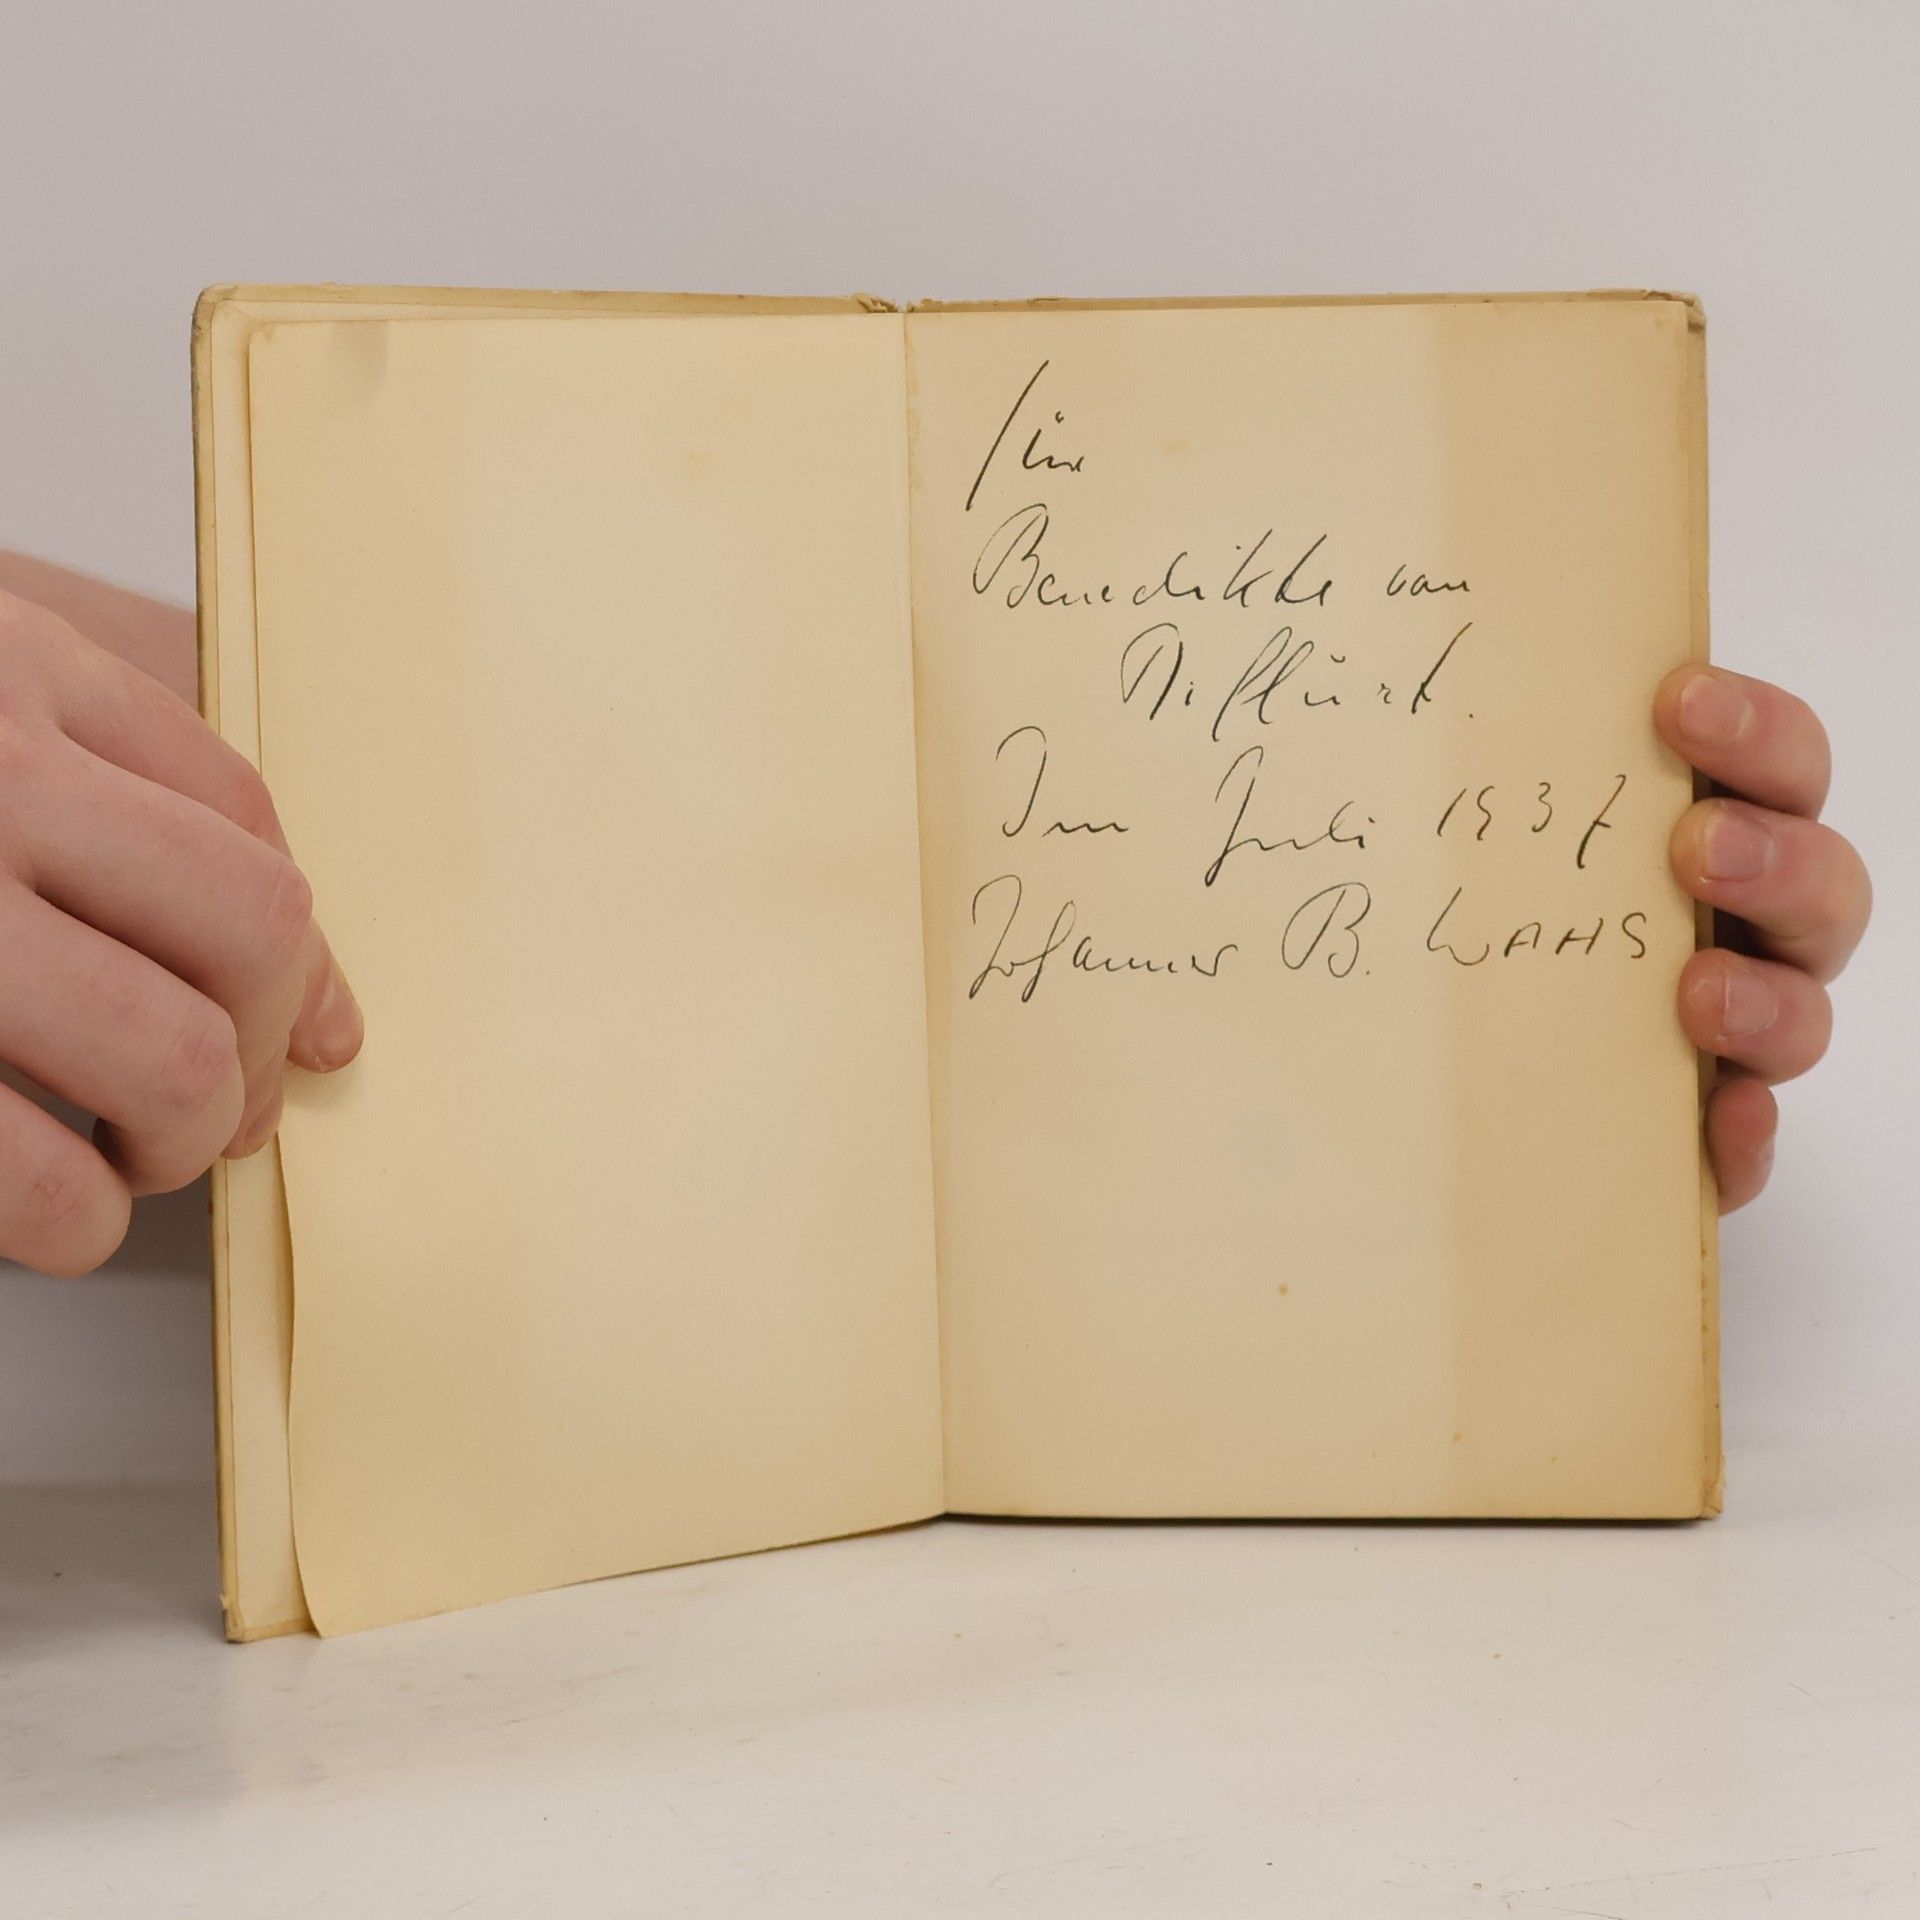 für
Benedikte von
Im Juli 1937
Johannes B. WAHS